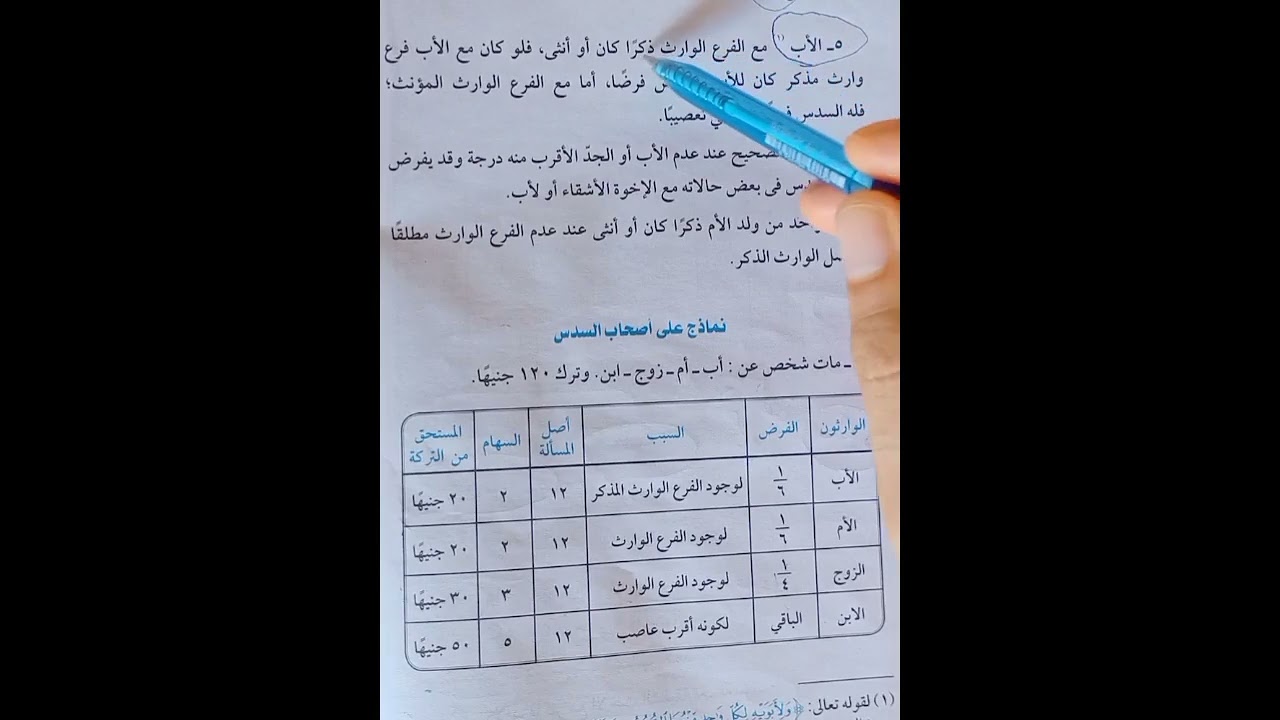 ٥ـ الأب (١) مع الفرع الوارث ذكرًا كان أو أنثى، فلو كان مع الأب فرع
وارث مذكر كان فرضًا، أما مع الفرع الوارث المؤنث؛
فله السدس تعصيبًا.
عند عدم الأب أو الجدّ الأقرب منه درجة وقد يفرض
فى بعض حالاته مع الإخوة الأشقاء أو لأب.
من ولد الأم ذكرًا كان أو أنثى عند عدم الفرع الوارث مطلقًا
الوارث الذكر.
نماذج على أصحاب السدس
ـ مات شخص عن : أب ـ أم ـ زوج ـ ابن. وترك ١٢٠ جنيهًا.
الوارثون الفرض السبب أصل المسألة السهام المستحق من التركة
الأب ١/٦ لوجود الفرع الوارث المذكر ١٢ ٢ ٢٠ جنيهًا
الأم ١/٦ لوجود الفرع الوارث ١٢ ٢ ٢٠ جنيهًا
الزوج ١/٤ لوجود الفرع الوارث ١٢ ٣ ٣٠ جنيهًا
الابن الباقي لكونه أقرب عاصب ١٢ ٥ ٥٠ جنيهًا
(١) لقوله تعالى: